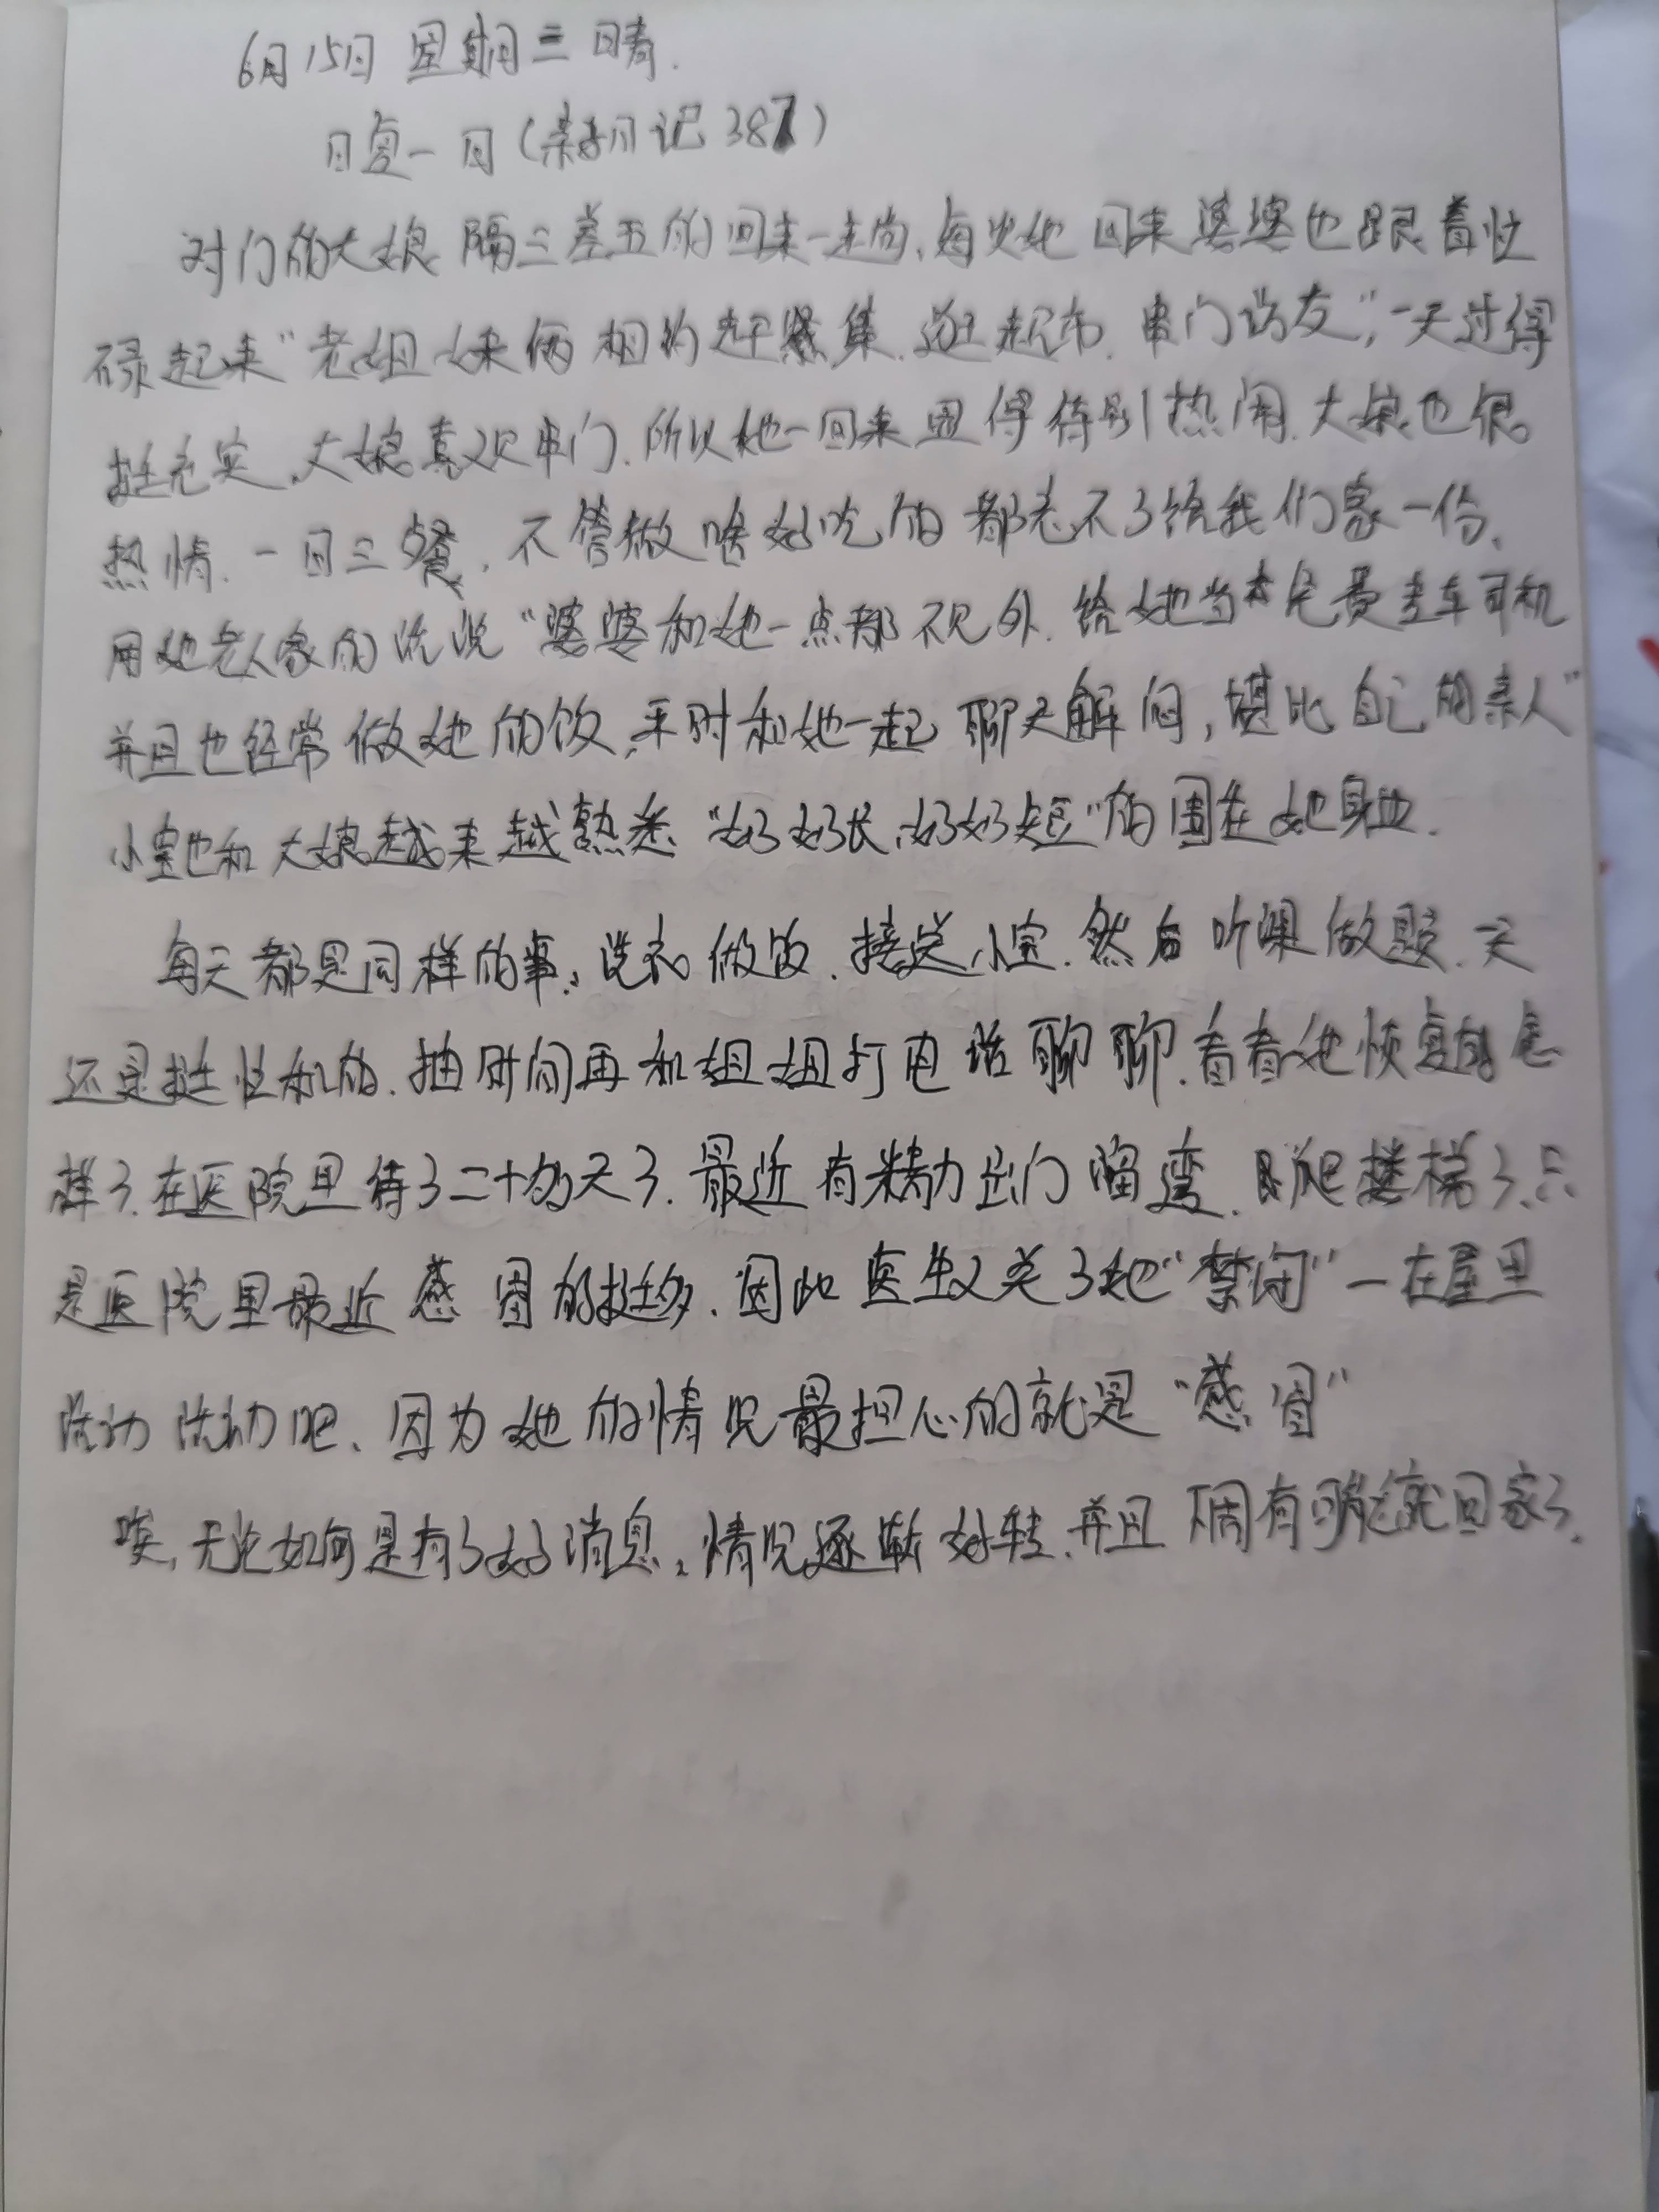 6月15日 星期三 晴.
日复一日(亲子日记387)
对门的大娘隔三差五的回来一趟,每次她回来婆婆也跟着忙
碌起来"老姐妹俩相约赶集.逛超市.串门访友",一天过得
挺充实.大娘喜欢串门.所以她一回来显得特别热闹.大娘也很
热情.一日三餐,不管做啥好吃的都忘不了给我们家一份.
用她老人家的话说"婆婆和她一点都不见外.给她当免费专车司机
并且也经常做她的饭,平时和她一起聊天解闷,堪比自己的亲人"
小宝也和大娘越来越熟悉"好好长,好好短"的围在她身边.
每天都是同样的事,洗衣做饭.接送小宝.然后听课做题.一天
还是挺忙和的.抽时间再和姐姐打电话聊聊.看看她恢复的怎
样了.在医院里待了二十多天了.最近有精力出门溜弯.爬楼梯了.只
是医院里最近感冒的挺多.因此医生又关了她"禁闭"—在屋里
活动活动吧、因为她的情况最担心的就是"感冒"
唉,无论如何是有了好消息,情况逐渐好转.并且下周有可能就回家了.